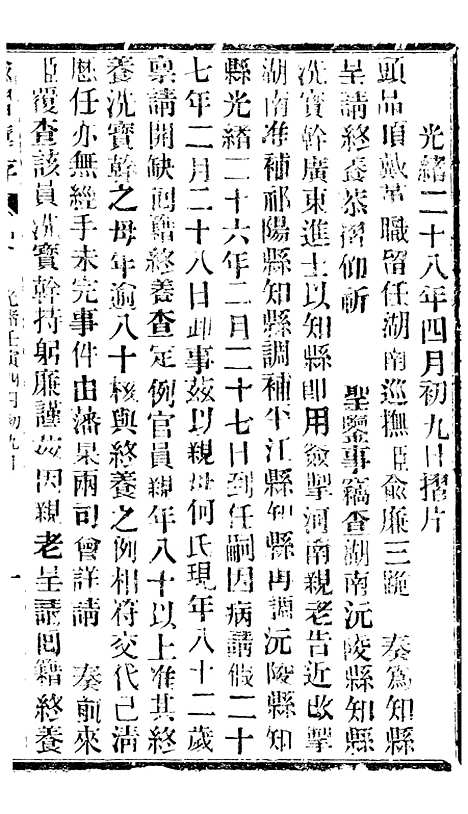 光緒二十八年四月初九日摺片
頭品頂戴革職留任湖南巡撫臣俞廉三跪　奏為知縣
呈請終養恭摺仰祈　聖鑒事竊查湖南沅陵縣知縣
冼寶幹廣東進士以知縣即用簽掣河南親老告近改掣
湖南准補祁陽縣知縣調補平江縣知縣再調沅陵縣知
縣光緒二十六年二月二十七日到任嗣因病請假二十
七年二月二十八日卸事茲以親母何氏現年八十二歲
稟請開缺回籍終養查定例官員親年八十以上准其終
養冼寶幹之母年逾八十核與終養之例相符交代已清
歷任亦無經手未完事件由藩臬兩司會詳請　奏前來
臣覆查該員冼寶幹持躬廉謹茲因親老呈請回籍終養
光緒壬寅四月初九日
一